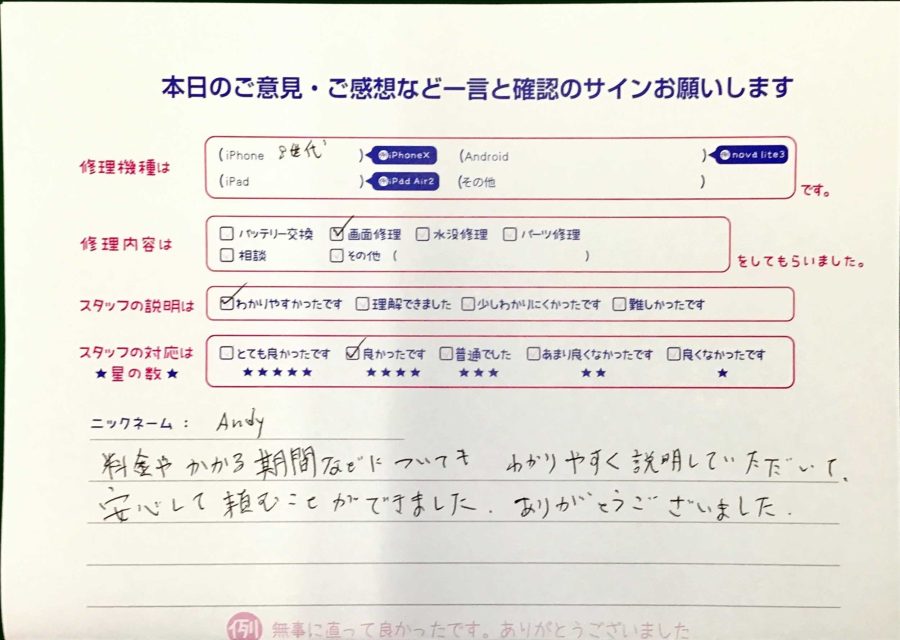 本日のご意見・ご感想など一言と確認のサインお願いします
修理機種は (iPhone 8世代 ) 例iPhoneX (Android ) 例nova lite3
(iPad ) 例iPad Air2 (その他 ) です。
修理内容は □バッテリー交換 ☑画面修理 □水没修理 □パーツ修理
□相談 □その他 ( ) をしてもらいました。
スタッフの説明は ☑わかりやすかったです □理解できました □少しわかりにくかったです □難しかったです
スタッフの対応は □とても良かったです ☑良かったです □普通でした □あまり良くなかったです □良くなかったです
★星の数★ ★★★★★ ★★★★ ★★★ ★★ ★
ニックネーム： Andy
料金やかかる期間などについても わかりやすく説明していただいて、
安心して頼むことができました. ありがとうございました.
例 無事に直って良かったです。ありがとうございました